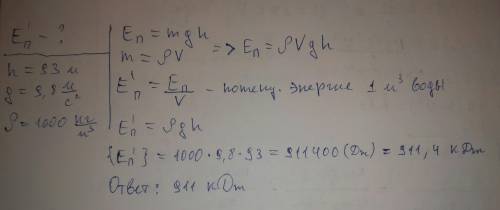 E'п - ?
h = 93 м
g = 9,8 м/с²
ρ = 1000 кг/м³
Eп = mgh
m = ρV
=> Eп = ρVgh
E'п = Eп/V - потену. энергие 1 м³ воды
E'п = ρgh
{E'п} = 1000·9,8·93 = 911400 (Дж) = 911,4 кДж
Ответ: 911 кДж